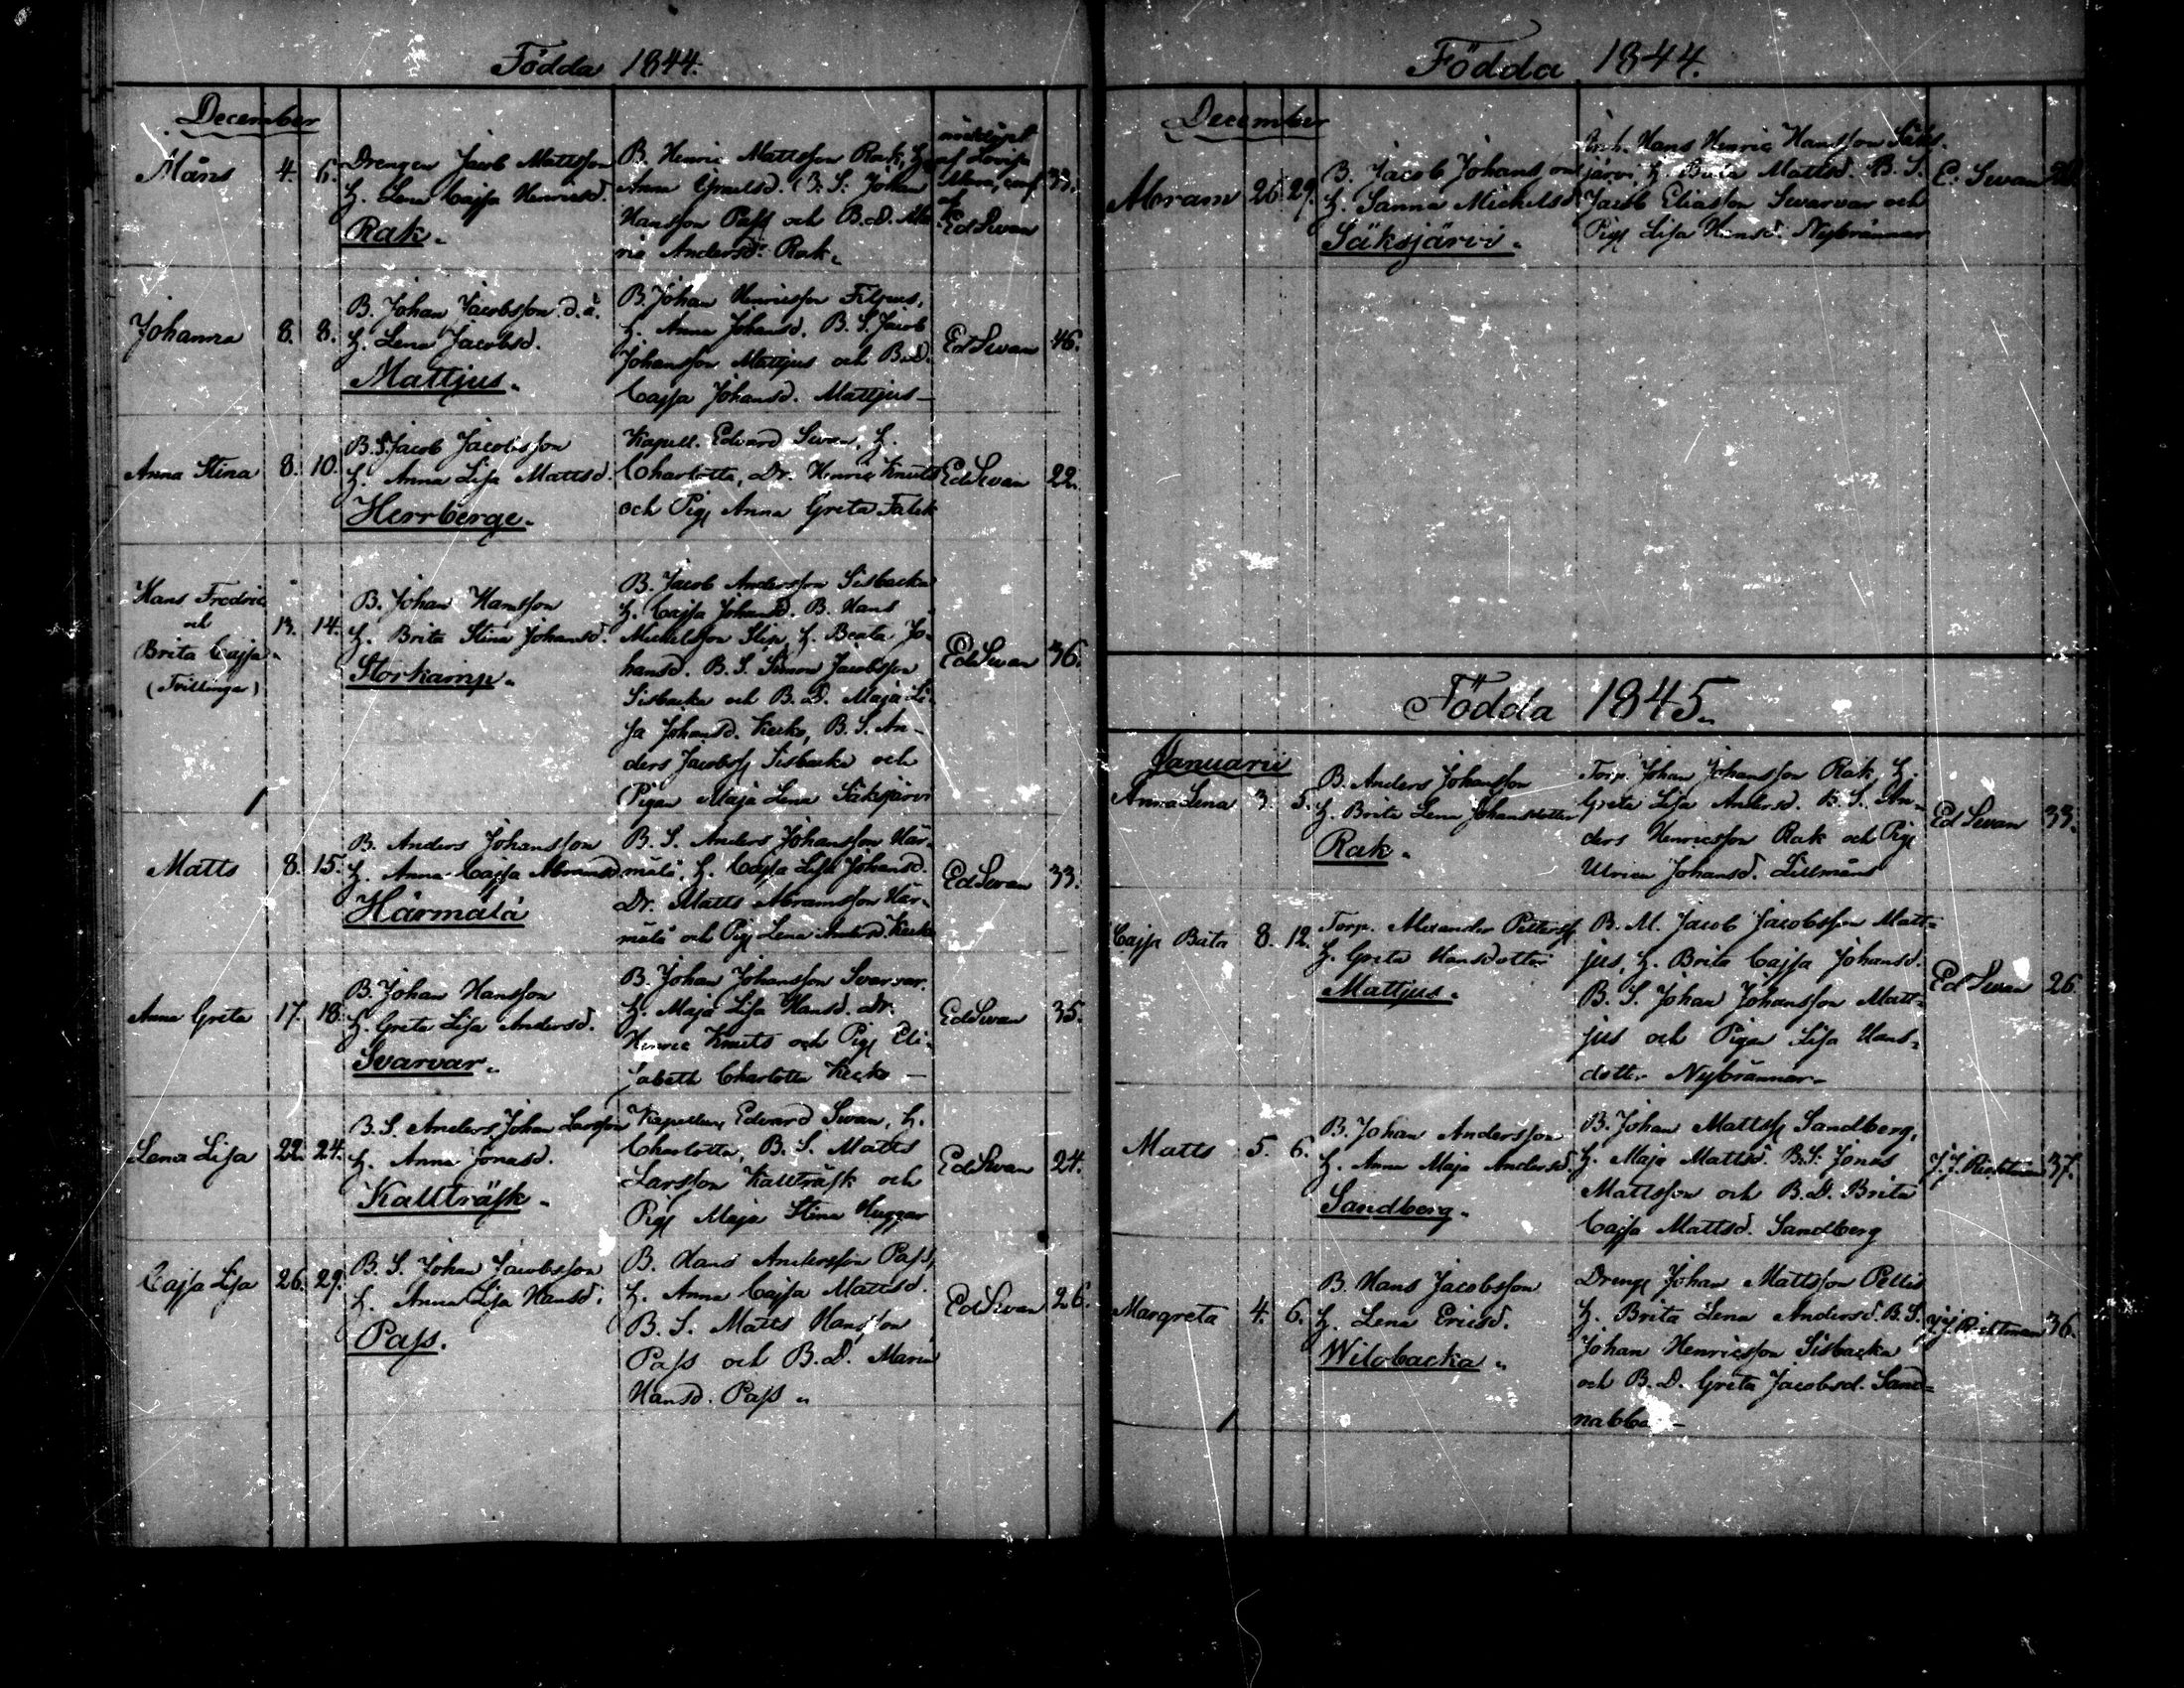 Födda 1844.
December
Måns 4. 6. Drengen Jacob Mattsson
H. Lena Cajsa Henricsd.
Rak.
B. Henric Mattsson Rak, H.
Anna Ersd. B. S. Johan
Hansson Pass och B. D. Ma
ria Andersd. Rak.
nöddöpt
af Lovisa
af
Ed Svan
33.
Johanna 8. 8. B. Johan Jacobsson d. ä.
H. Lena Jacobsd.
Mattjus.
B. Johan Henricsson Filpus,
H. Anna Johansd. B. S. Jacob
Johansson Mattjus och B. D.
Cajsa Johansd. Mattjus
Ed Svan 46.
Anna Stina 8. 10. B. S. Jacob Jacobsson
H. Anna Lisa Mattsd.
Herrberge.
Kapell. Edvard Svan, H.
Charlotta, Dr. Henric Knuts
och Pig. Anna Greta Falck
Ed Svan 22.
Hans Fredric
och
Brita Cajsa
(Tvillingar)
13. 14. B. Johan Hansson
H. Brita Stina Johansd.
Storkamp.
B. Jacob Andersson Sisbacka
H. Cajsa Johansd. B. Hans
Michelsson Slip, H. Beata Jo-
hansd. B. S. Simon Jacobsson
Sisbacka och B. D. Maja Li-
sa Johansd. Kecko, B. S. An-
ders Jacobss. Sisbacka och
Pigan Maja Lena Säksjärvi
Ed Svan 36.
Matts 8. 15. B. Anders Johansson
H. Anna Cajsa Abramsd.
Härmälä
B. S. Anders Johansson Här-
mälä, H. Cajsa Lisa Johansd.
Dr. Matts Abramsson Här-
mälä och Pig. Lena Andersd. Kecko
Ed Svan 33.
Anna Greta 17. 18. B. Johan Hansson
H. Greta Lisa Andersd.
Svarvar.
B. Johan Johansson Svarvar.
H. Maja Lisa Hansd. Dr.
Henric Knuts och Pig. Eli-
sabeth Charlotta Kecko
Ed Svan 35.
Lena Lisa 22. 24. B. S. Anders Johan Larsson
H. Anna Jonasd.
Kallträsk.
Kapellan Edvard Svan, H.
Charlotta, B. S. Matts
Larsson Kallträsk och
Pig. Maja Stina Huggar
Ed Svan 24.
Cajsa Lisa 26. 29. B. S. Johan Jacobsson
H. Anna Lisa Hansd.
Pass.
B. Hans Andersson Pass,
H. Anna Cajsa Mattsd.
B. S. Matts Hansson
Pass och B. D. Maria
Hansd. Pass
Ed Svan 26.
Födda 1844.
December
Abram 26 29. B. Jacob Johansson
H. Sanna Michelsd
Säksjärvi.
Hans Henric Hansson Säks-
järvi, H. Brita Mattsd. B. S.
Jacob Eliasson Svarvar och
Pig. Lisa Hansd. Nybrännar
E. Svan
Födda 1845.
Januarii
Anna Lena 3. 5. B. Anders Johansson
H. Brita Lena Johansdotter
Rak.
Torp. Johan Johansson Rak, H.
Greta Lisa Andersd. B. S. An-
ders Henricsson Rak och Pig.
Ulrica Johansd. Lillmåns
Ed Svan 33.
Cajsa Beata 8. 12. Torp. Alexander Petterss.
H. Greta Hansdotter
Mattjus.
B. M. Jacob Jacobsson Matt-
jus, H. Brita Cajsa Johansd.
B. S. Johan Johansson Matt-
jus och Pigan Lisa Hans-
dotter Nybrännar
Ed Svan 26.
Matts 5. 6. B. Johan Andersson
H. Anna Maja Andersd.
Sandberg.
B. Johan Mattss. Sandberg,
H. Maja Mattsd. B. S. Jonas
Mattsson och B. D. Brita
Cajsa Mattsd. Sandberg
37.
Margreta 4. 6. B. Hans Jacobsson
H. Lena Ericsd.
Wilobacka
Dreng. Johan Mattsson Pellis
H. Brita Lena Andersd. B. S.
Johan Henricsson Sisbacka
och B. D. Greta Jacobsd. Sand-
nabba
36.